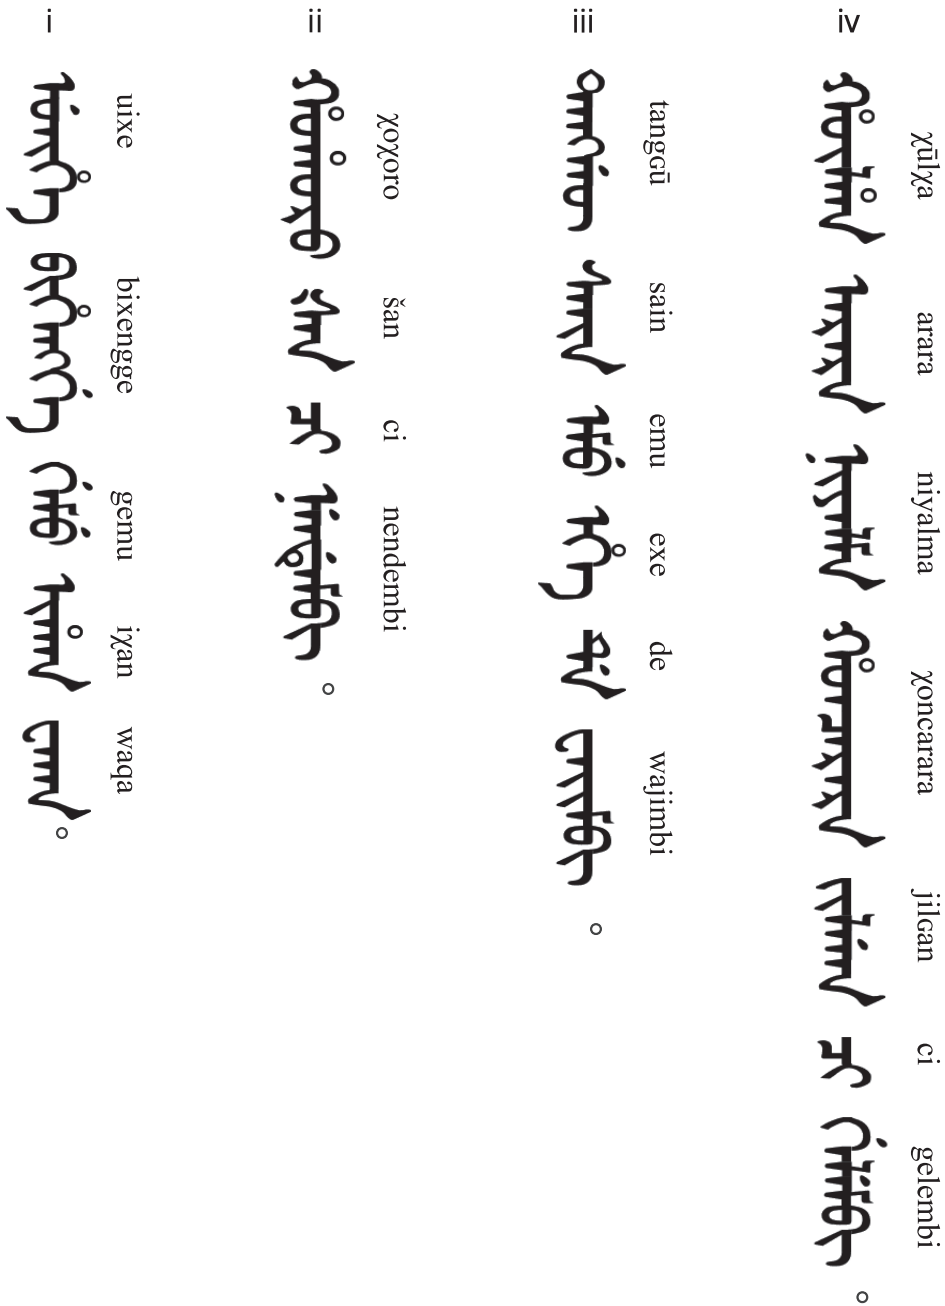 i
ᡠᡳᡥᡝ ᠪᡳᡥᡝᠩᡤᡝ ᡤᡝᠮᡠ ᡳᡥᠠᠨ ᠸᠠᡴᠠ 。
uixe bixengge gemu iχan waqa
ii
ᡥᠣᡥᠣᡵᠣ ᡧᠠᠨ ᠴᡳ ᠨᡝᠨᡩᡝᠮᠪᡳ 。
χoχoro šan ci nendembi
iii
ᡨᠠᠩᡤᡡ ᠰᠠᡳᠨ ᡝᠮᡠ ᡝᡥᡝ ᡩᡝ ᠸᠠᠵᡳᠮᠪᡳ 。
tangɢū sain emu exe de wajimbi
iv
ᡥᡡᠯᡥᠠ ᠠᡵᠠᡵᠠ ᠨᡳᠶᠠᠯᠮᠠ ᡥᠣᠨᠴᠠᡵᠠᡵᠠ ᠵᡳᠯᡤᠠᠨ ᠴᡳ ᡤᡝᠯᡝᠮᠪᡳ 。
χūlχa arara niyalma χoncarara jilɢan ci gelembi